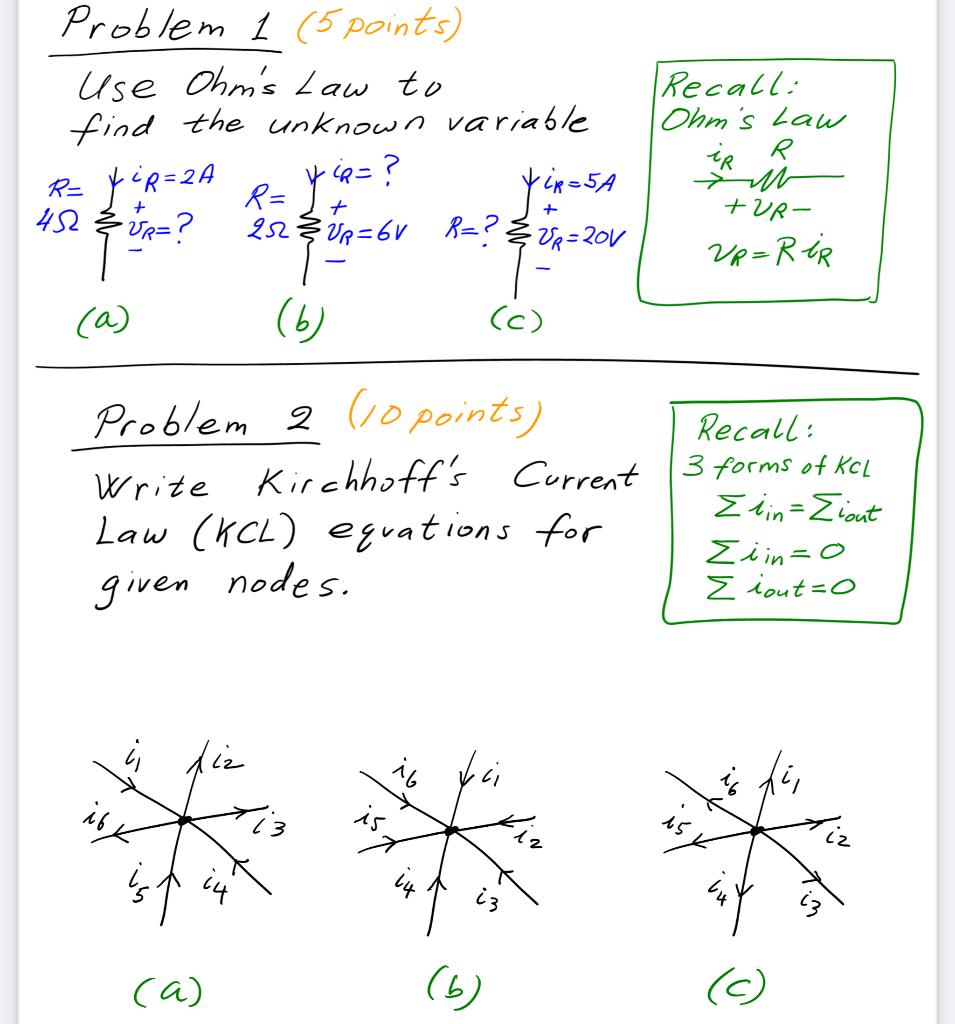 Problem 1 (5 points)
Use Ohm's Law to
find the unknown variable
R=
4Ω
iR=2A
+
vR=?
−
(a)
R=
2Ω
iR= ?
+
vR=6V
−
(b)
R=?
iR=5A
+
vR=20V
−
(c)
Recall:
Ohm's Law
iR R
+ vR −
vR = R iR
Problem 2 (10 points)
Write Kirchhoff's Current
Law (KCL) equations for
given nodes.
Recall:
3 forms of KCL
Σ iin = Σ iout
Σ i in = 0
Σ iout = 0
i1
i2
i3
i4
i5
i6
(a)
i1
i2
i3
i4
i5
i6
(b)
i1
i2
i3
i4
i5
i6
(c)